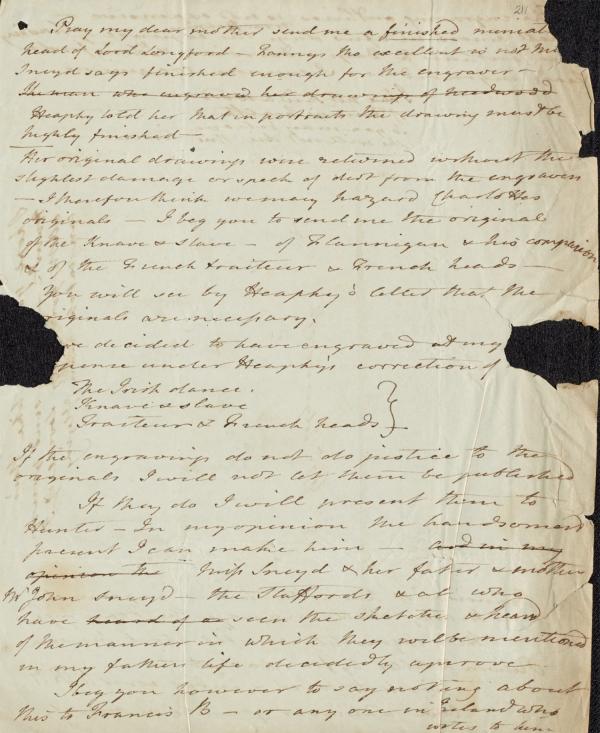 211
Pray my dear mother send me a finished miniat
head of Lord Longford – Fannys tho excellent is not Mr
Sneyd says finished enough for the engraver –
The man who engraved her drawings of Needwood
Heaphy told her that in portraits the drawing must be
highly finished –
Her original drawings were returned without the
slightest damage or speck of dirt from the engravers
– I therefore think we may hazard Charlottes
originals – I beg you to send me the original
of the Knave & slave – of Flannigan & his companion
& of the French traiteur & French heads –
You will see by Heaphy's letter that the
riginals are necessary.
ve decided to have engraved at my
pense under Heaphy's correction of
The Irish dance.
Knave & slave
Traiteur & French heads
If the engravings do not do justice to the
originals I will not let them be published
If they do I will present them to
Hunter – In my opinion the handsomest
present I can make him – and in my
opinion the Miss Sneyd & her father & mother
Mr John Sneyd – the Staffords & all who
have heard of or seen the sketches & heard
of the manner in which they will be mentioned
in my fathers life decidedly approve
I beg you however to say nothing about
this to Francis B – or any one in Ireland who
writes to him